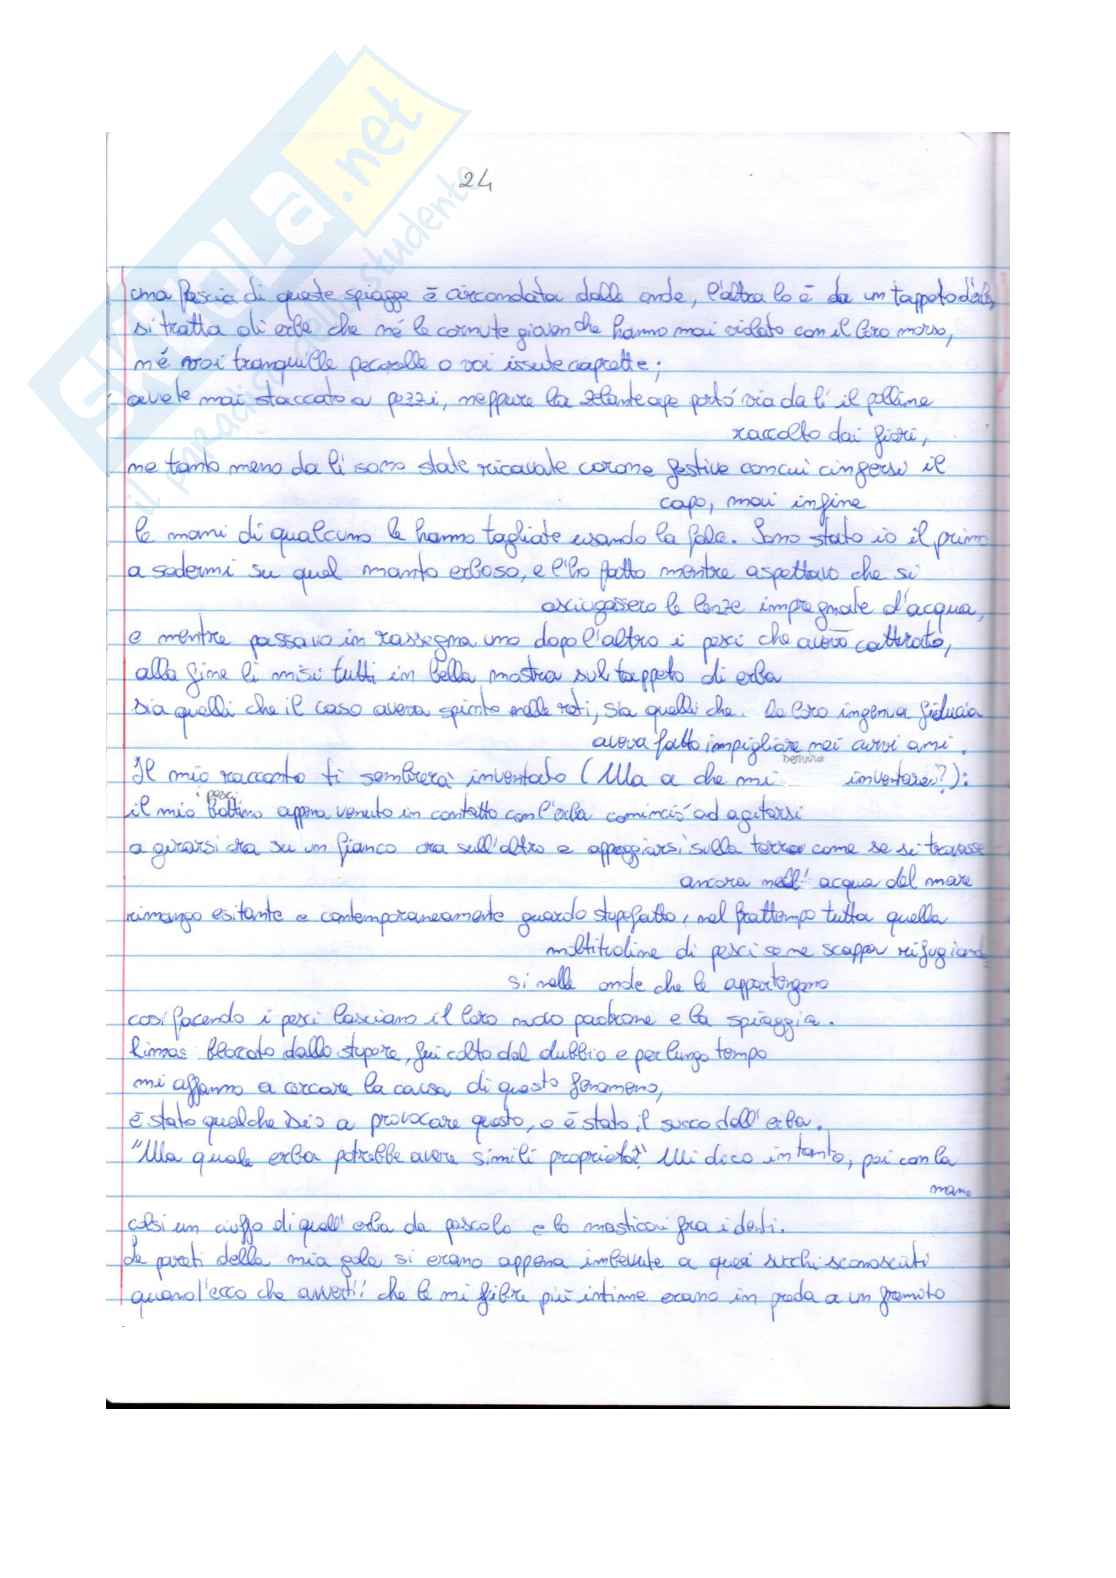 SKUOLA.net
il paradiso dello studente
24
una fascia di queste spiagge è circondata dalle onde, l'altra lo è da un tappeto d'erba,
si tratta di erbe che né le cornute giovenche hanno mai violato con il loro morso,
né voi tranquille pecorelle o voi issute caprette;
avete mai staccato a pezzi, neppure la zelante ape portò via da lì il polline
raccolto dai fiori,
ne tanto meno da lì sono state ricavate corone festive con cui cingersi il
capo, mai infine
le mani di qualcuno le hanno tagliate usando la falce. Sono stato io il primo
a sedermi su quel manto erboso, e l'ho fatto mentre aspettavo che si
asciugassero le lenze impregnate d'acqua,
e mentre passavo in rassegna uno dopo l'altro i pesci che avevo catturato,
alla fine li misi tutti in bella mostra sul tappeto di erba
sia quelli che il caso aveva spinto nelle reti, sia quelli che. la loro ingenua fiducia
aveva fatto impigliare nei curvi ami.
Il mio racconto ti sembrerà inventato (Ma a che mi inventare?):
i pesci
il mio bottino appena venuto in contatto con l'erba cominciò ad agitarsi
a girarsi ora su un fianco ora sull'altro e appoggiarsi sulla terra come se si trovasse
ancora nell' acqua del mare
rimango esitante e contemporaneamente guardo stupefatto, nel frattempo tutta quella
moltitudine di pesci se ne scappa rifugiand
si nelle onde che le appartengono
così facendo i pesci lasciano il loro nuovo padrone e la spiaggia.
Rimasi bloccato dallo stupore, fui colto dal dubbio e per lungo tempo
mi affanno a cercare la causa di questo fenomeno,
è stato qualche dio a provocare questo, o è stato il succo dell' erba.
"Ma quale erba potrebbe avere simili proprietà?" Mi dico intanto, poi con la
mano
colsi un ciuffo di quell' erba da pascolo e lo masticai fra i denti.
Le pareti della mia gola si erano appena imbevute a quei succhi sconosciuti
quand'ecco che avvertii che le mi fibre più intime erano in preda a un fremito